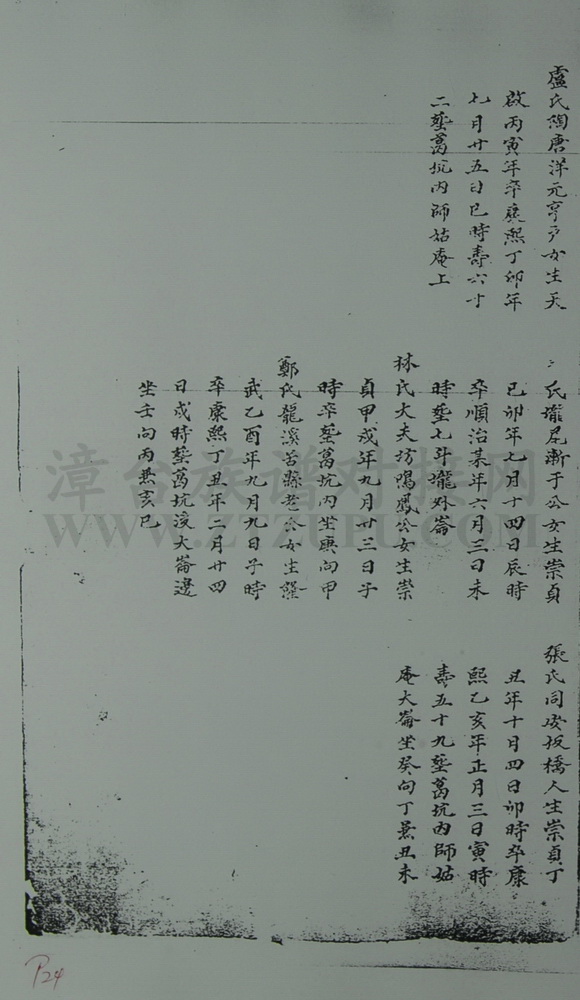 盧氏陶唐洋元亨戶女生天
啟丙寅年卒康熙丁卯年
七月廿五日巳時壽六十
二塟萬坑內師姑庵上
氏壠尾漸于公女生崇貞
己卯年七月十四日辰時
卒順治某年六月三日未
時塟七斗壠外崙
林氏大夫坊鳴鳳公女生崇
貞甲戌年九月廿三日子
時卒塟萬坑內坐庚向甲
鄭氏龍溪苦縣老公女生
武乙酉年九月九日子時
卒康熙丁丑年二月廿四
日戌時塟萬坑後大崙邊
坐壬向丙兼亥巳
張氏同安板橋人生崇貞丁
丑年十月四日卯時卒康
熙乙亥年正月三日寅時
壽五十九塟萬坑內師姑
庵大崙坐癸向丁兼丑未
漳台族谱对接网
WWW.ZTZUPU.COM
P24